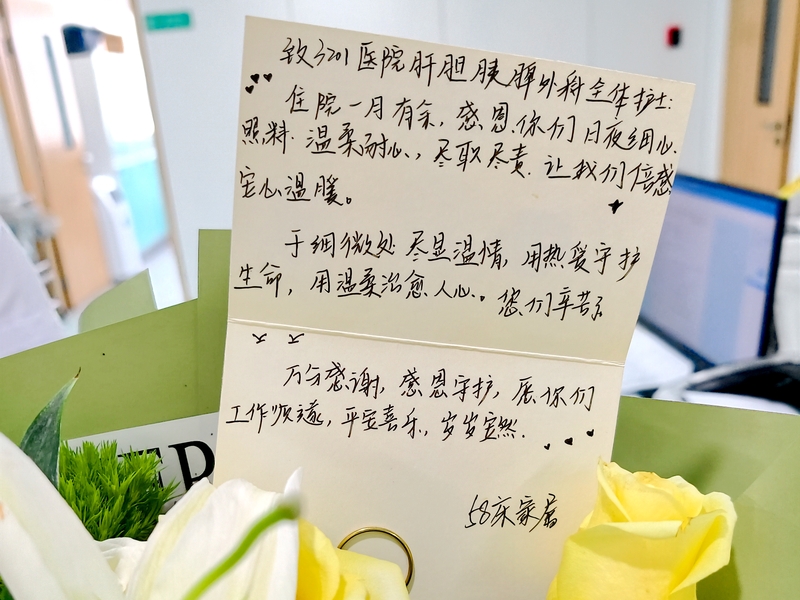 致3201医院肝胆胰脾外科全体护士:
住院一月有余,感恩你们日夜细心
照料.温柔耐心,尽职尽责.让我们倍感
安心温暖。
于细微处尽显温情,用热爱守护
生命,用温柔治愈人心。您们辛苦了
万分感谢,感恩守护,愿你们
工作顺遂,平安喜乐,岁岁安然.
58床家属